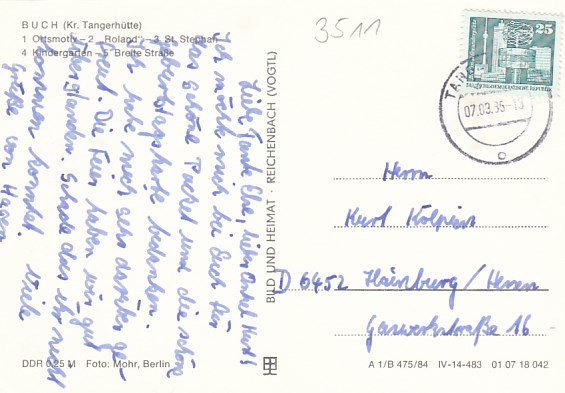 BUCH (Kr. Tangerhütte)
1 Ortsmotiv – 2 „Roland" – 3 St. Stephan
4 Kindergarten – 5 Breite Straße
Liebe Tante Else, lieber Onkel Kurt!
Ich möchte mich bei Euch für
das schöne Packet und die schöne
Geburtstagskarte bedanken.
Ich habe mich sehr darüber ge-
freut. Die Feier haben wir gut
überstanden. Schade das ihr nicht
kommen konntet. Viele
Grüße von
DDR 0,25 M Foto: Mohr, Berlin
BILD UND HEIMAT · REICHENBACH (VOGTL)
3511
25
07.03.86-13
Herrn
Kurt
D 6452 Hainburg/Hessen
Gaswerkstraße 16
A 1/B 475/84 IV-14-483 01 07 18 042